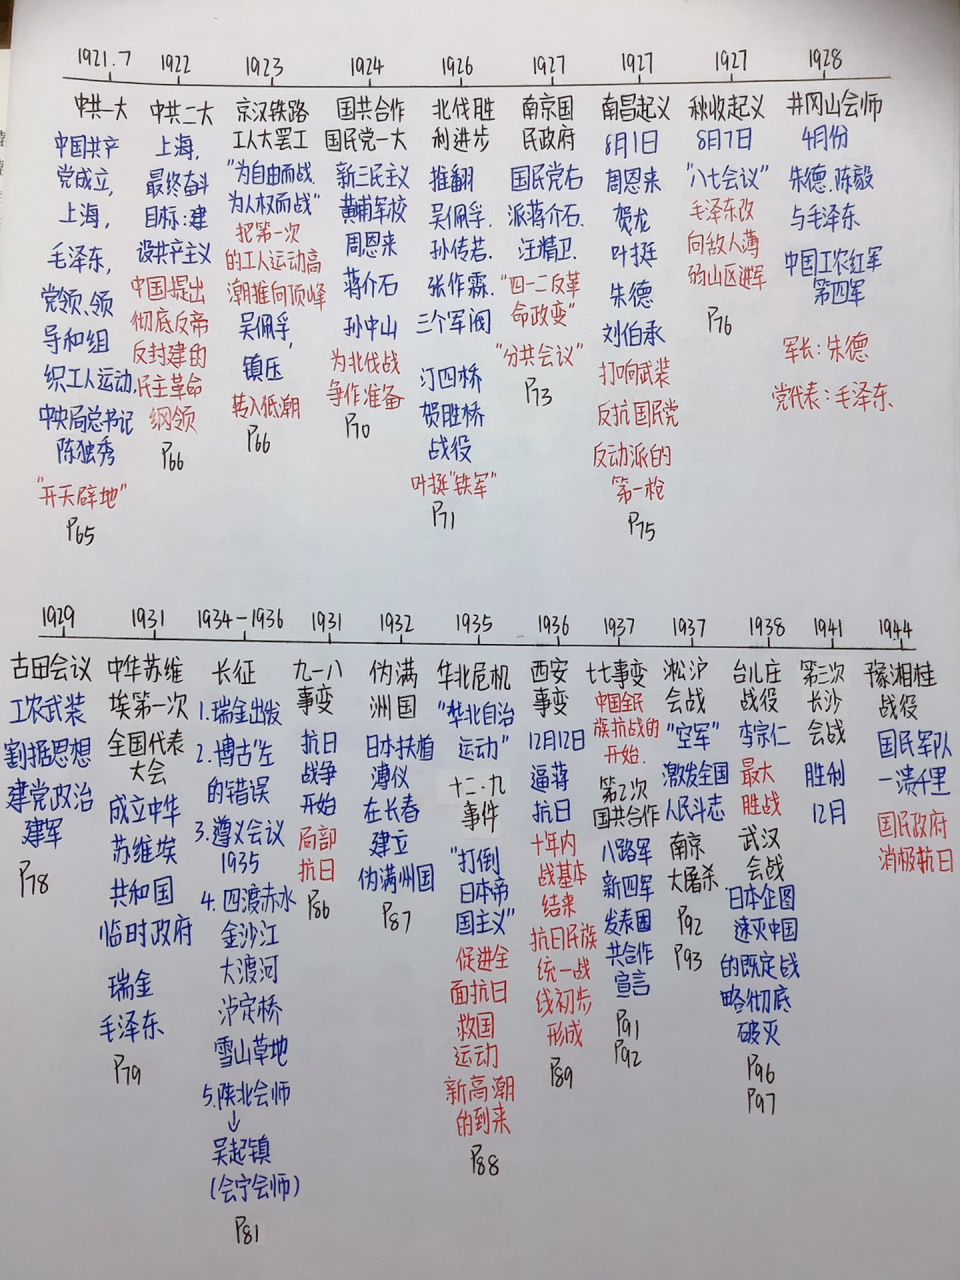 1921.7
中共一大
中国共产
党成立,
上海,
毛泽东,
党领、领
导和组
织工人运动,
中央局总书记
陈独秀
"开天辟地"
P65
1922
中共二大
上海,
最终奋斗
目标:建
设共产主义
中国提出
彻底反帝
反封建的
民主革命
纲领
P66
1923
京汉铁路
工人大罢工
"为自由而战.
为人权而战"
把第一次
的工人运动高
潮推向顶峰
吴佩孚,
镇压
转入低潮
P66
1924
国共合作
国民党一大
新三民主义
黄埔军校
周恩来
蒋介石
孙中山
为北伐战
争作准备
P70
1926
北伐胜
利进步
推翻
吴佩孚.
孙传芳.
张作霖.
三个军阀
汀四桥
贺胜桥
战役
叶挺"铁军"
P71
1927
南京国
民政府
国民党右
派蒋介石.
汪精卫.
"四一二反革
命政变"
"分共会议"
P73
1927
南昌起义
8月1日
周恩来
贺龙
叶挺
朱德
刘伯承
打响武装
反抗国民党
反动派的
第一枪
P75
1927
秋收起义
8月7日
"八七会议"
毛泽东改
向敌人薄
弱山区进军
P76
1928
井冈山会师
4月份
朱德.陈毅
与毛泽东
中国工农红军
第四军
军长:朱德
党代表:毛泽东.
1929
古田会议
工农武装
割据思想
建党政治
建军
P78
1931
中华苏维
埃第一次
全国代表
大会
成立中华
苏维埃
共和国
临时政府
瑞金
毛泽东
P79
1934-1936
长征
1.瑞金出发
2."博古"左
的错误
3.遵义会议
1935
4.四渡赤水
金沙江
大渡河
泸定桥
雪山草地
5.陕北会师
↓
吴起镇
(会宁会师)
P81
1931
九一八
事变
抗日
战争
开始
局部
抗日
P86
1932
伪满
洲国
日本扶植
溥仪
在长春
建立
伪满州国
P87
1935
华北危机
"华北自治
运动"
十二·九
事件
"打倒
日本帝
国主义"
促进全
面抗日
救国
运动
新高潮
的到来
P88
1936
西安
事变
12月12日
逼蒋
抗日
十年内
战基本
结束
抗日民族
统一战
线初步
形成
P89
1937
七七事变
中国全民
族抗战的
开始.
第2次
国共合作
八路军
新四军
发表国
共合作
宣言
P91
P92
1937
淞沪
会战
"空军"
激发全国
人民斗志
南京
大屠杀.
P92
P93
1938
台儿庄
战役
李宗仁
最大
胜战
武汉
会战
日本企图
速灭中国
的既定战
略彻底
破灭
P96
P97
1941
第三次
长沙
会战
胜利
12月
1944
豫湘桂
战役
国民军队
一溃千里
国民政府
消极抗日